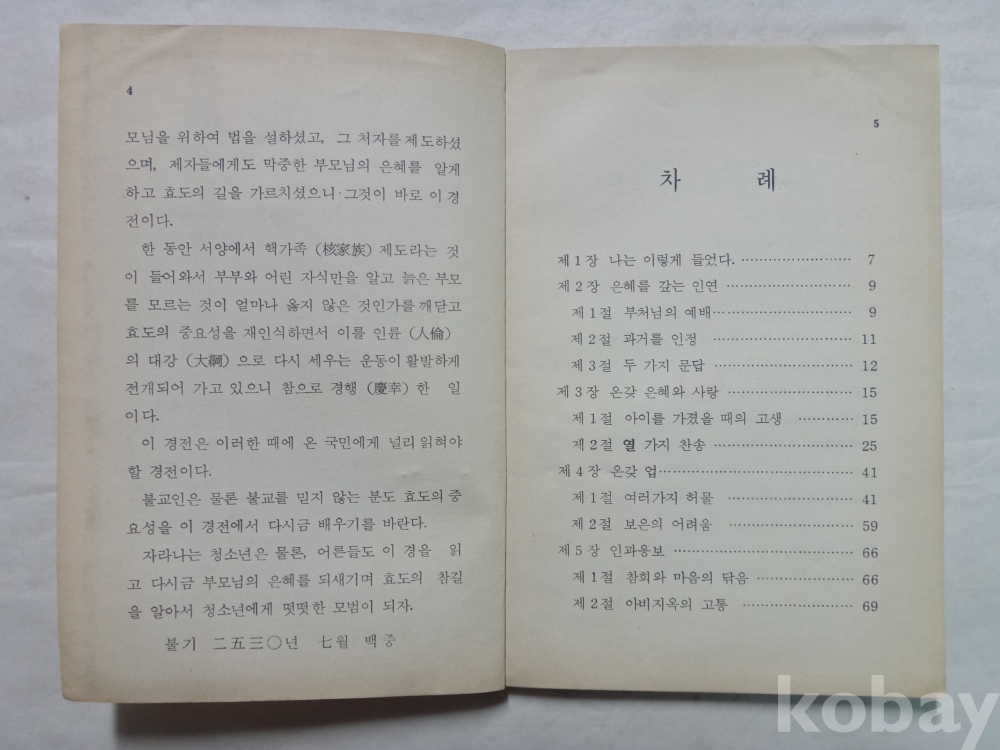 4
모님을 위하여 법을 설하셨고, 그 처자를 제도하셨
으며, 제자들에게도 막중한 부모님의 은혜를 알게
하고 효도의 길을 가르치셨으니·그것이 바로 이 경
전이다.
한 동안 서양에서 핵가족 (核家族) 제도라는 것
이 들어와서 부부와 어린 자식만을 알고 늙은 부모
를 모르는 것이 얼마나 옳지 않은 것인가를 깨닫고
효도의 중요성을 재인식하면서 이를 인륜 (人倫)
의 대강 (大綱) 으로 다시 세우는 운동이 활발하게
전개되어 가고 있으니 참으로 경행 (慶幸) 한 일
이다.
이 경전은 이러한 때에 온 국민에게 널리 읽혀야
할 경전이다.
불교인은 물론 불교를 믿지 않는 분도 효도의 중
요성을 이 경전에서 다시금 배우기를 바란다.
자라나는 청소년은 물론, 어른들도 이 경을 읽
고 다시금 부모님의 은혜를 되새기며 효도의 참길
을 알아서 청소년에게 떳떳한 모범이 되자.
불기 二五三〇년 七월 백중
5
차 례
제 1 장 나는 이렇게 들었다. ························ 7
제 2 장 은혜를 갚는 인연 ························ 9
제 1 절 부처님의 예배························ 9
제 2 절 과거를 인정 ························ 11
제 3 절 두 가지 문답 ························ 12
제 3 장 온갖 은혜와 사랑 ························ 15
제 1 절 아이를 가졌을 때의 고생 ············ 15
제 2 절 열 가지 찬송 ························ 25
제 4 장 온갖 업························ 41
제 1 절 여러가지 허물 ························ 41
제 2 절 보은의 어려움 ························ 59
제 5 장 인과응보 ························ 66
제 1 절 참회와 마음의 닦음 ··················· 66
제 2 절 아비지옥의 고통 ························ 69
kobay